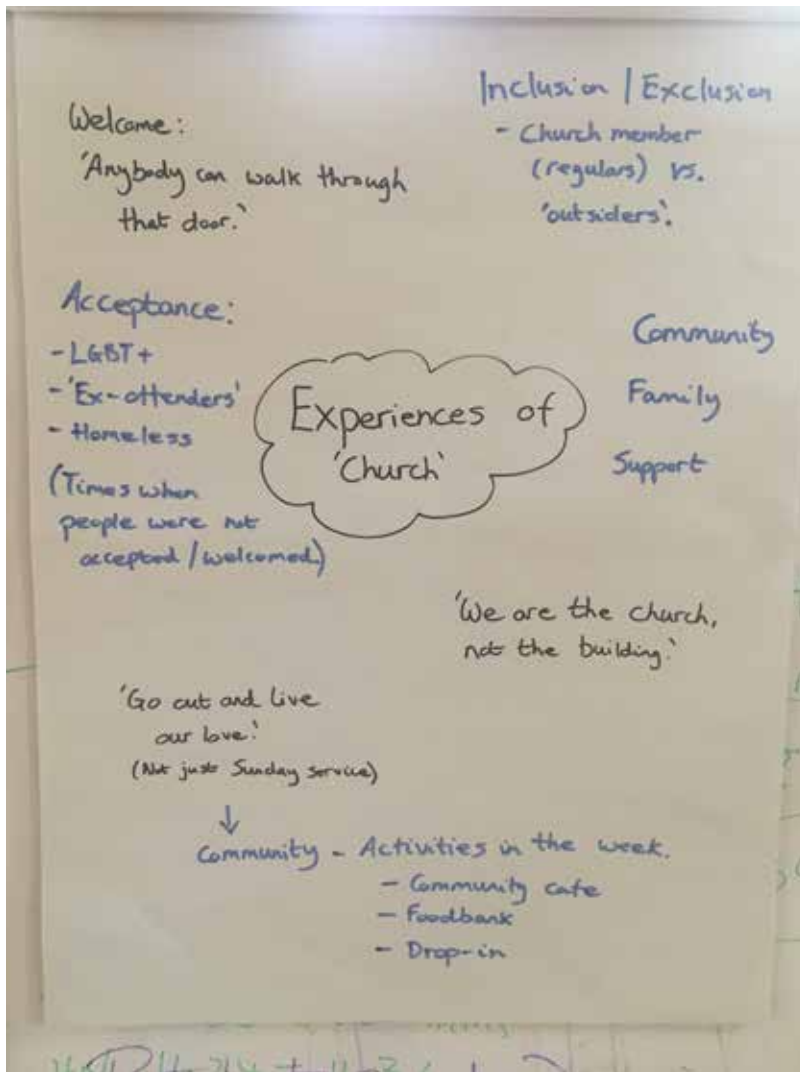 Welcome:
'Anybody can walk through
that door.'
Inclusion / Exclusion
- Church member
(regulars) vs.
'outsiders'.
Acceptance:
- LGBT+
- 'Ex-offenders'
- Homeless
(Times when
people were not
accepted / welcomed.)
Experiences of
'Church'
Community
Family
Support
'We are the church,
not the building.'
'Go out and live
our love.'
(Not just Sunday service)
↓
Community - Activities in the week.
- Community cafe
- Foodbank
- Drop-in